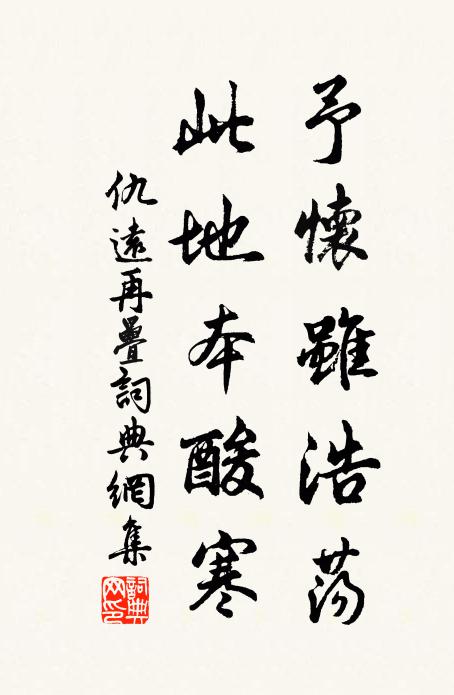 予懷雖浩蕩
此地本酸寒
仇遠再疊詞典網集
詞典网印